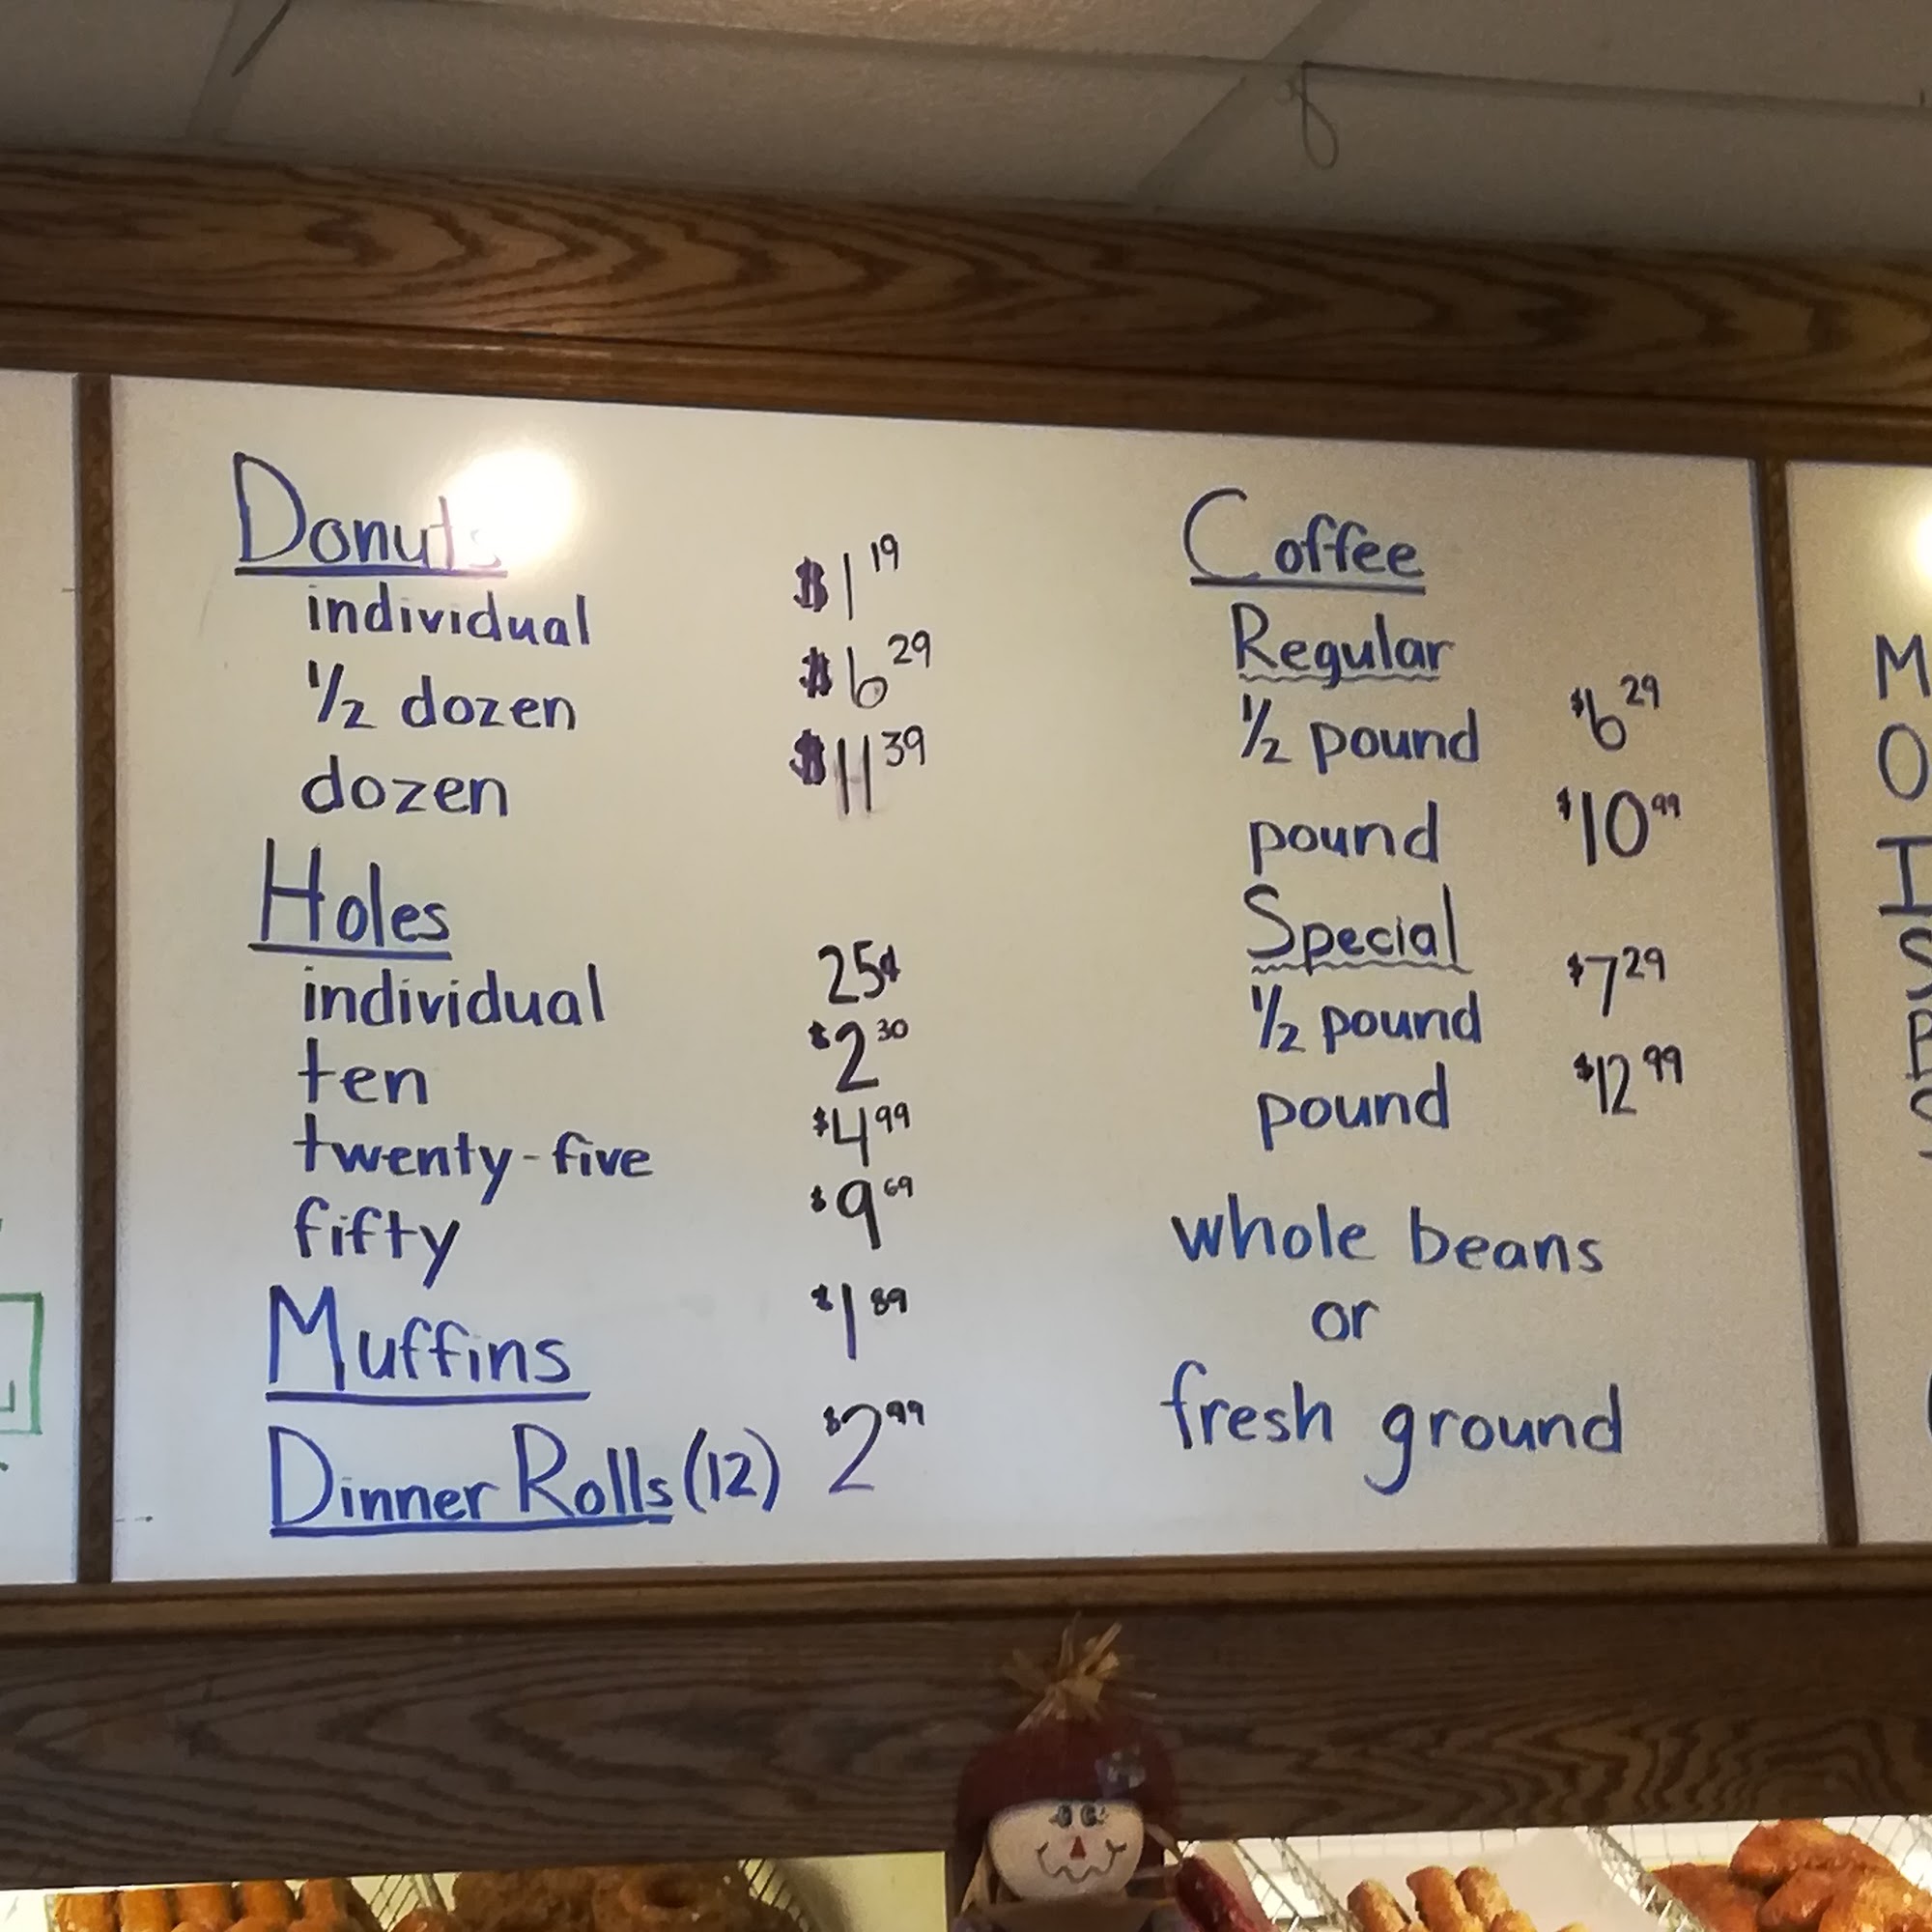 Donuts
individual $1 19
1/2 dozen $6 29
dozen $11 39
Holes
individual 25¢
ten $2 30
twenty-five $4 99
fifty $9 69
Muffins $1 89
Dinner Rolls (12) $2 99
Coffee
Regular
1/2 pound $6 29
pound $10 99
Special
1/2 pound $7 29
pound $12 99
whole beans
or
fresh ground